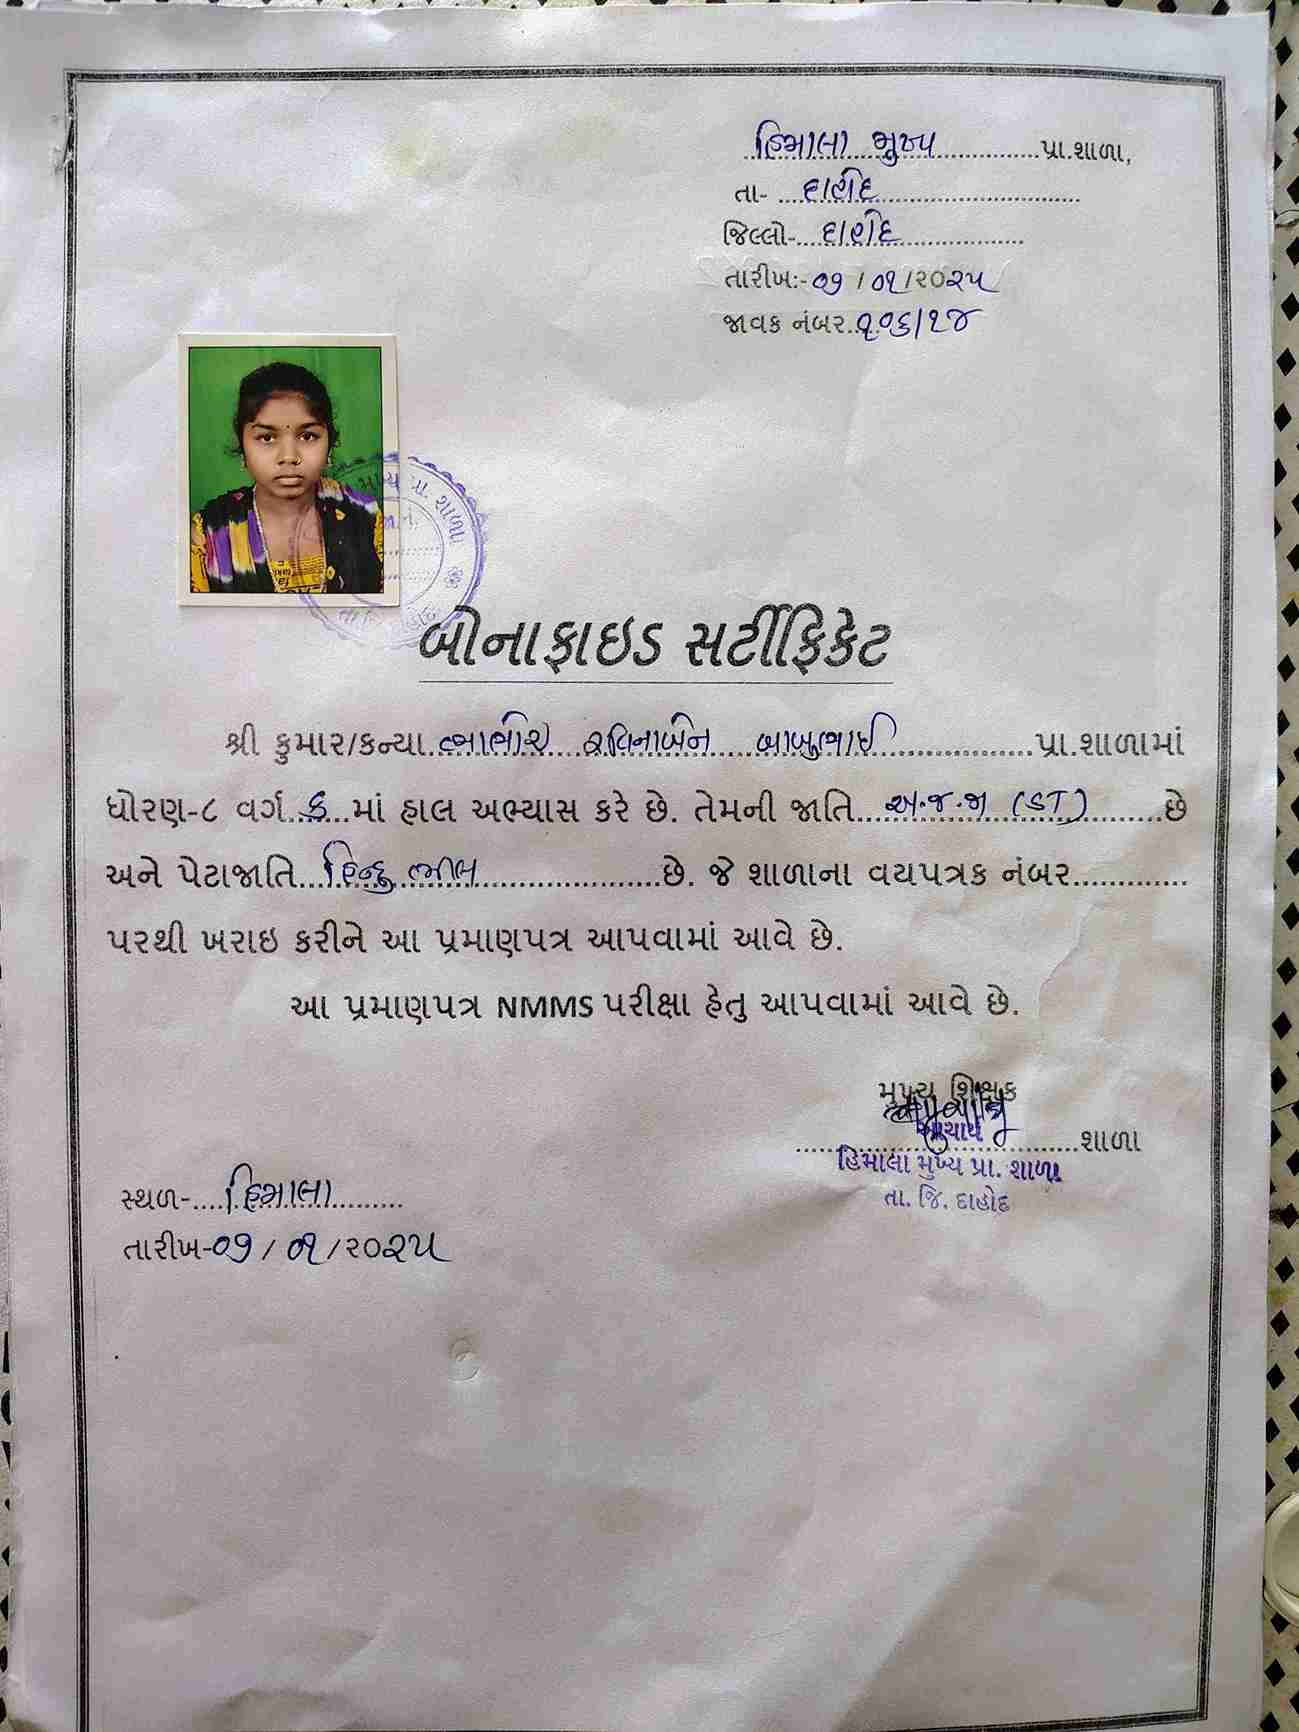 હિમાલા મુખ્ય પ્રા.શાળા,
તા- દાહોદ
જિલ્લો- દાહોદ
તારીખ:- ૦૭/૦૧/૨૦૨૫
જાવક નંબર ૧૦૬/૨૪
બોનાફાઇડ સર્ટીફિકેટ
શ્રી કુમાર/કન્યા ભાભોર રવિનાબેન બાબુભાઈ પ્રા.શાળામાં
ધોરણ-૮ વર્ગ ક માં હાલ અભ્યાસ કરે છે. તેમની જાતિ અ.જ.જા (ST) છે
અને પેટાજાતિ હિન્દુ ભીલ છે. જે શાળાના વયપત્રક નંબર
પરથી ખરાઇ કરીને આ પ્રમાણપત્ર આપવામાં આવે છે.
આ પ્રમાણપત્ર NMMS પરીક્ષા હેતુ આપવામાં આવે છે.
મુખ્ય શિક્ષક
આચાર્ય
શાળા
હિમાલા મુખ્ય પ્રા. શાળા
તા. જિ. દાહોદ
સ્થળ- હિમાલા
તારીખ-૦૭/૦૧/૨૦૨૫